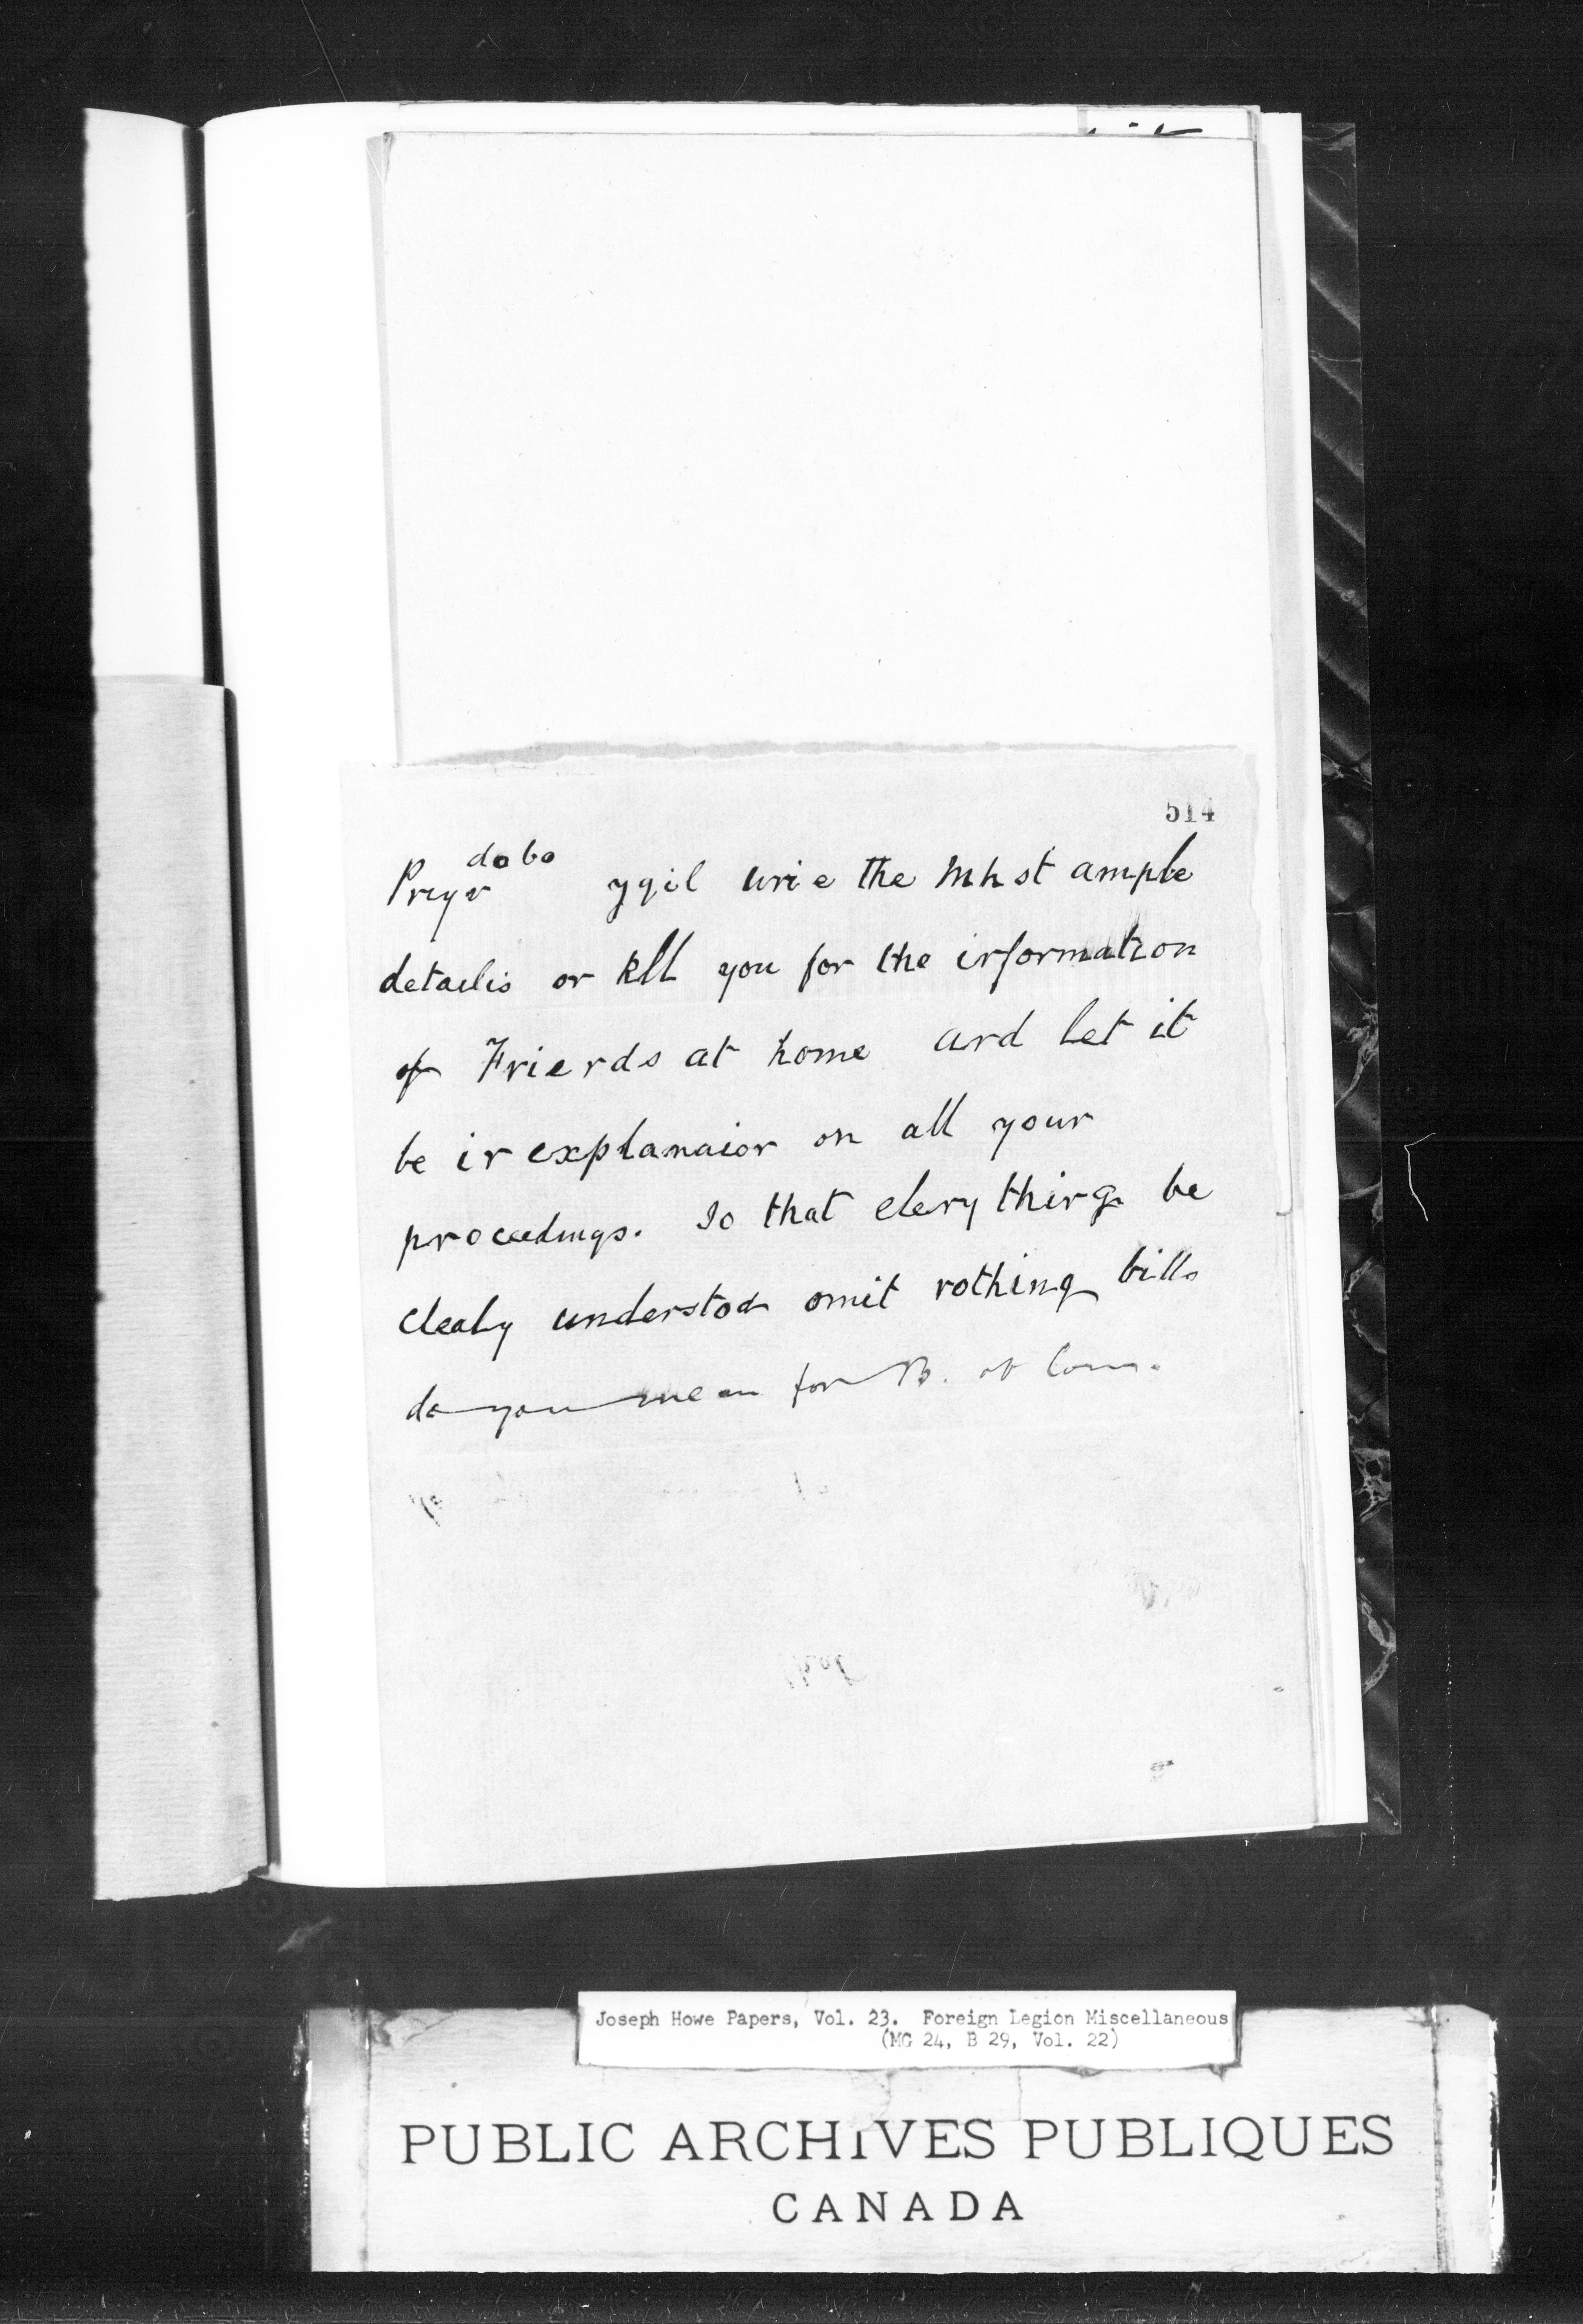 514
dobo
Preyr ygil wrie the mhst ample
details or kll you for the irformation
of Frierds at home ard let it
be ir explanaior on all your
proceedings. So that elerythirg be
clealy understod omit rothing bills
do you mean for B. of Com.
Joseph Howe Papers, Vol. 23. Foreign Legion Miscellaneous
(MG 24, B 29, Vol. 22)
PUBLIC ARCHIVES PUBLIQUES
CANADA